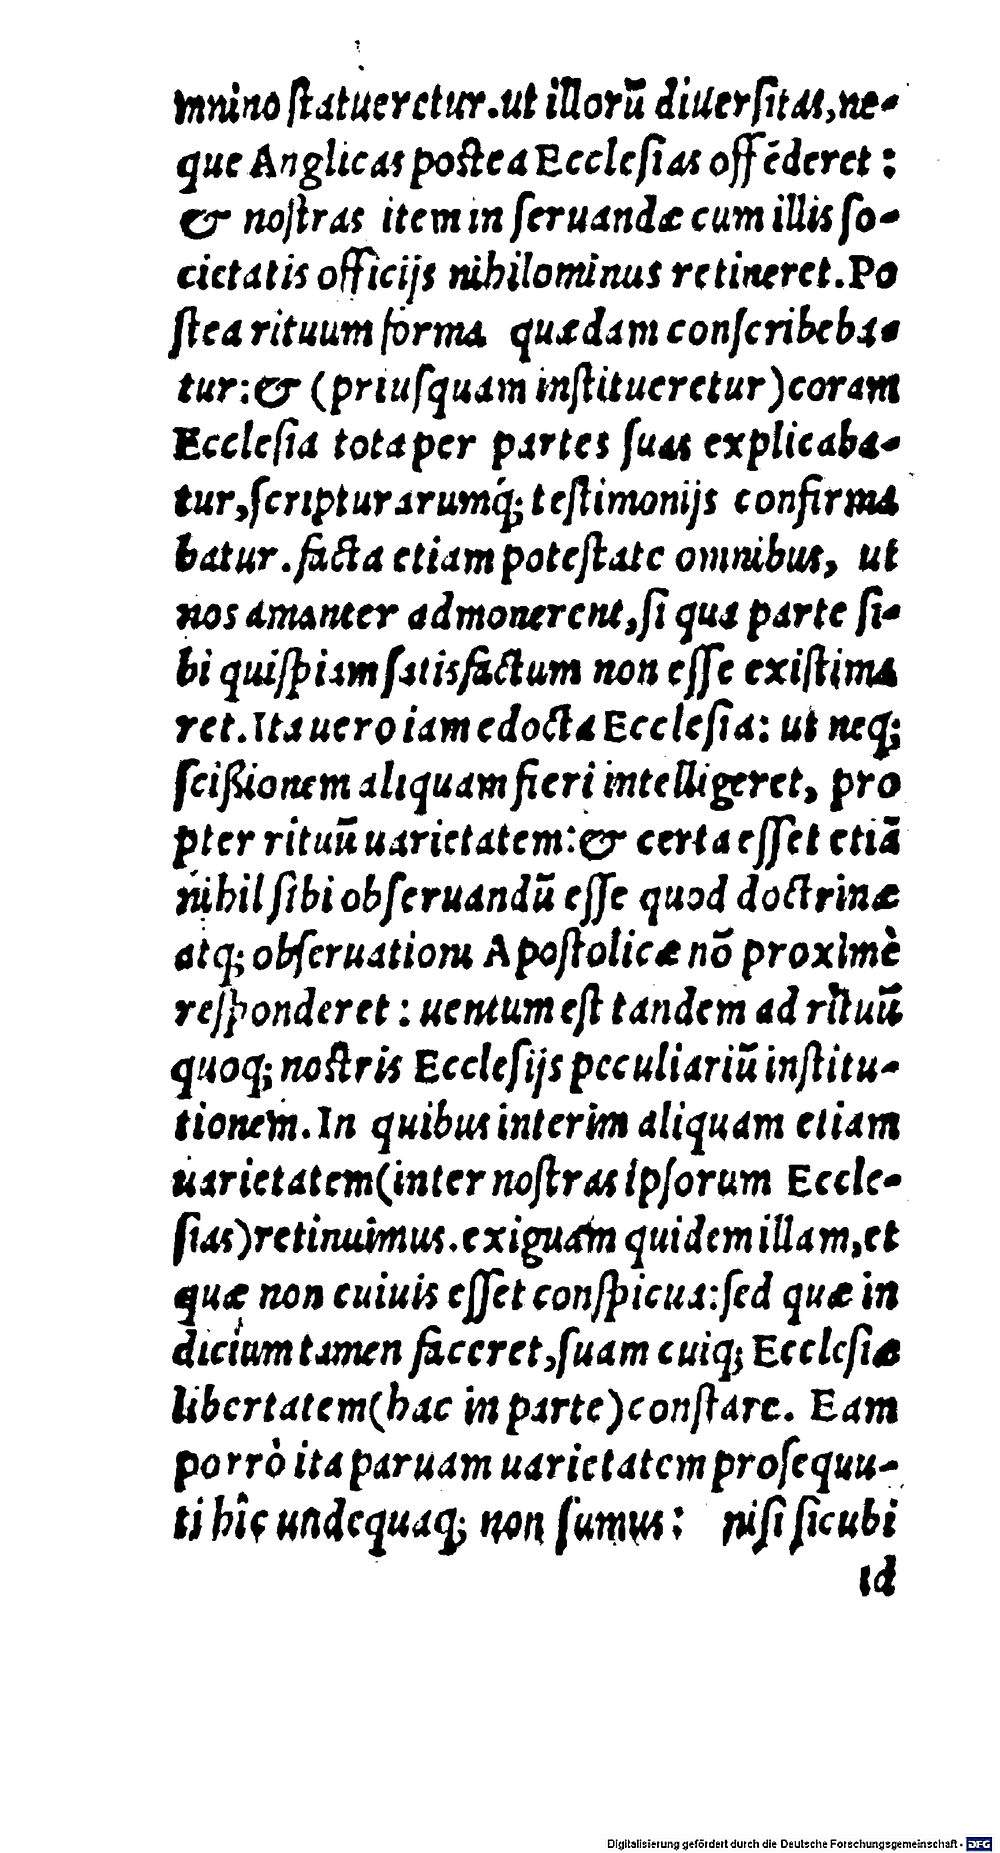 mnino ſtatueretur.ut illorũ diuerſitas,ne-
que Anglicas poſtea Eccleſias offẽderet :
& noſtras item in ſeruandæ cum illis ſo-
cietatis officijs nihilominus retineret.Po
ſtea rituum forma quædam conſcribeba-
tur:& (priuſquam inſtitueretur)coram
Eccleſia tota per partes ſuas explicaba-
tur,ſcripturarumq́; teſtimonijs confirma
batur.facta etiam poteſtate omnibus, ut
nos amanter admonerent,ſi qua parte ſi-
bi quiſpiam ſatisfactum non eſſe exiſtima
ret.Ita uero iam edocta Eccleſia: ut neq;
ſcißionem aliquam fieri intelligeret, pro
pter rituũ uarietatem:& certa eſſet etiã
nihil ſibi obſeruandũ eſſe quod doctrinæ
atq; obſeruationi Apoſtolicæ nõ proximè
reſponderet : uentum eſt tandem ad rituũ
quoq; noſtris Eccleſijs peculiariũ inſtitu-
tionem.In quibus interim aliquam etiam
uarietatem(inter noſtras ipſorum Eccle-
ſias)retinuimus.exiguam quidem illam,et
quæ non cuiuis eſſet conſpicua:ſed quæ in
dicium tamen faceret,ſuam cuiq; Eccleſiæ
libertatem(hac in parte)conſtare. Eam
porrò ita paruam uarietatem proſequu-
ti hîc undequaq; non ſumus : niſi ſicubi
id
Digitalisierung gefördert durch die Deutsche Forschungsgemeinschaft - DFG